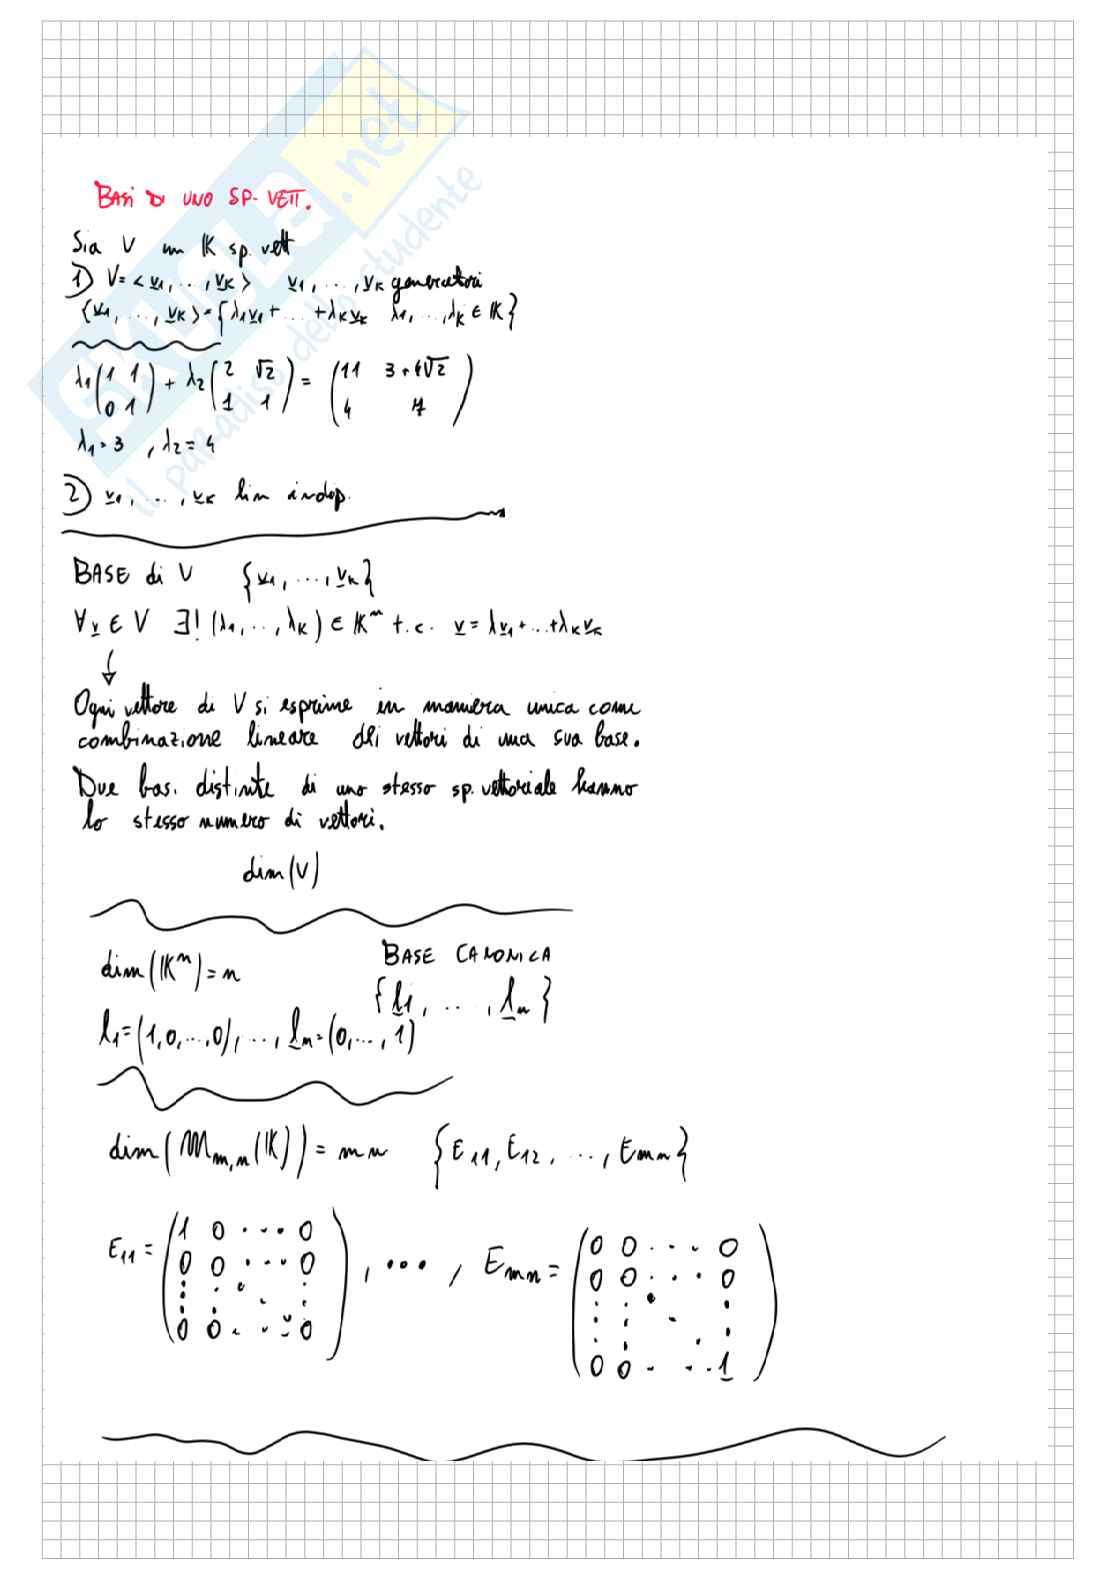 BASI DI UNO SP. VETT.
Sia V un K sp. vett
1) V = < v1, ..., vk > v1, ..., vk generatori
{v1, ..., vk> = {λ1v1 + ... + λkvk λ1, ..., λk ∈ K}
λ1 (1 1 / 0 1) + λ2 (2 √2 / 1 1) = (11 3+4√2 / 4 7)
λ1 = 3 , λ2 = 4
2) v1, ..., vk lin indep.
BASE di V {v1, ..., vk}
∀v ∈ V ∃! (λ1, ..., λk) ∈ K^n t.c. v = λv1 + ... + λkvk
↓
Ogni vettore di V si esprime in maniera unica come
combinazione lineare dei vettori di una sua base.
Due basi distinte di uno stesso sp. vettoriale hanno
lo stesso numero di vettori.
dim(V)
dim(K^n) = n BASE CANONICA
{l1, ..., ln}
l1 = (1,0,...,0), ..., ln = (0,...,1)
dim(Mm,n(K)) = mn {E11, E12, ..., Emn}
E11 = (1 0 ... 0 / 0 0 ... 0 / ⋮ ⋮ ⋱ ⋮ / 0 0 ... 0), ..., Emn = (0 0 ... 0 / 0 0 ... 0 / ⋮ ⋮ ⋱ ⋮ / 0 0 ... 1)
SKUOLA.net
il paradiso dello studente